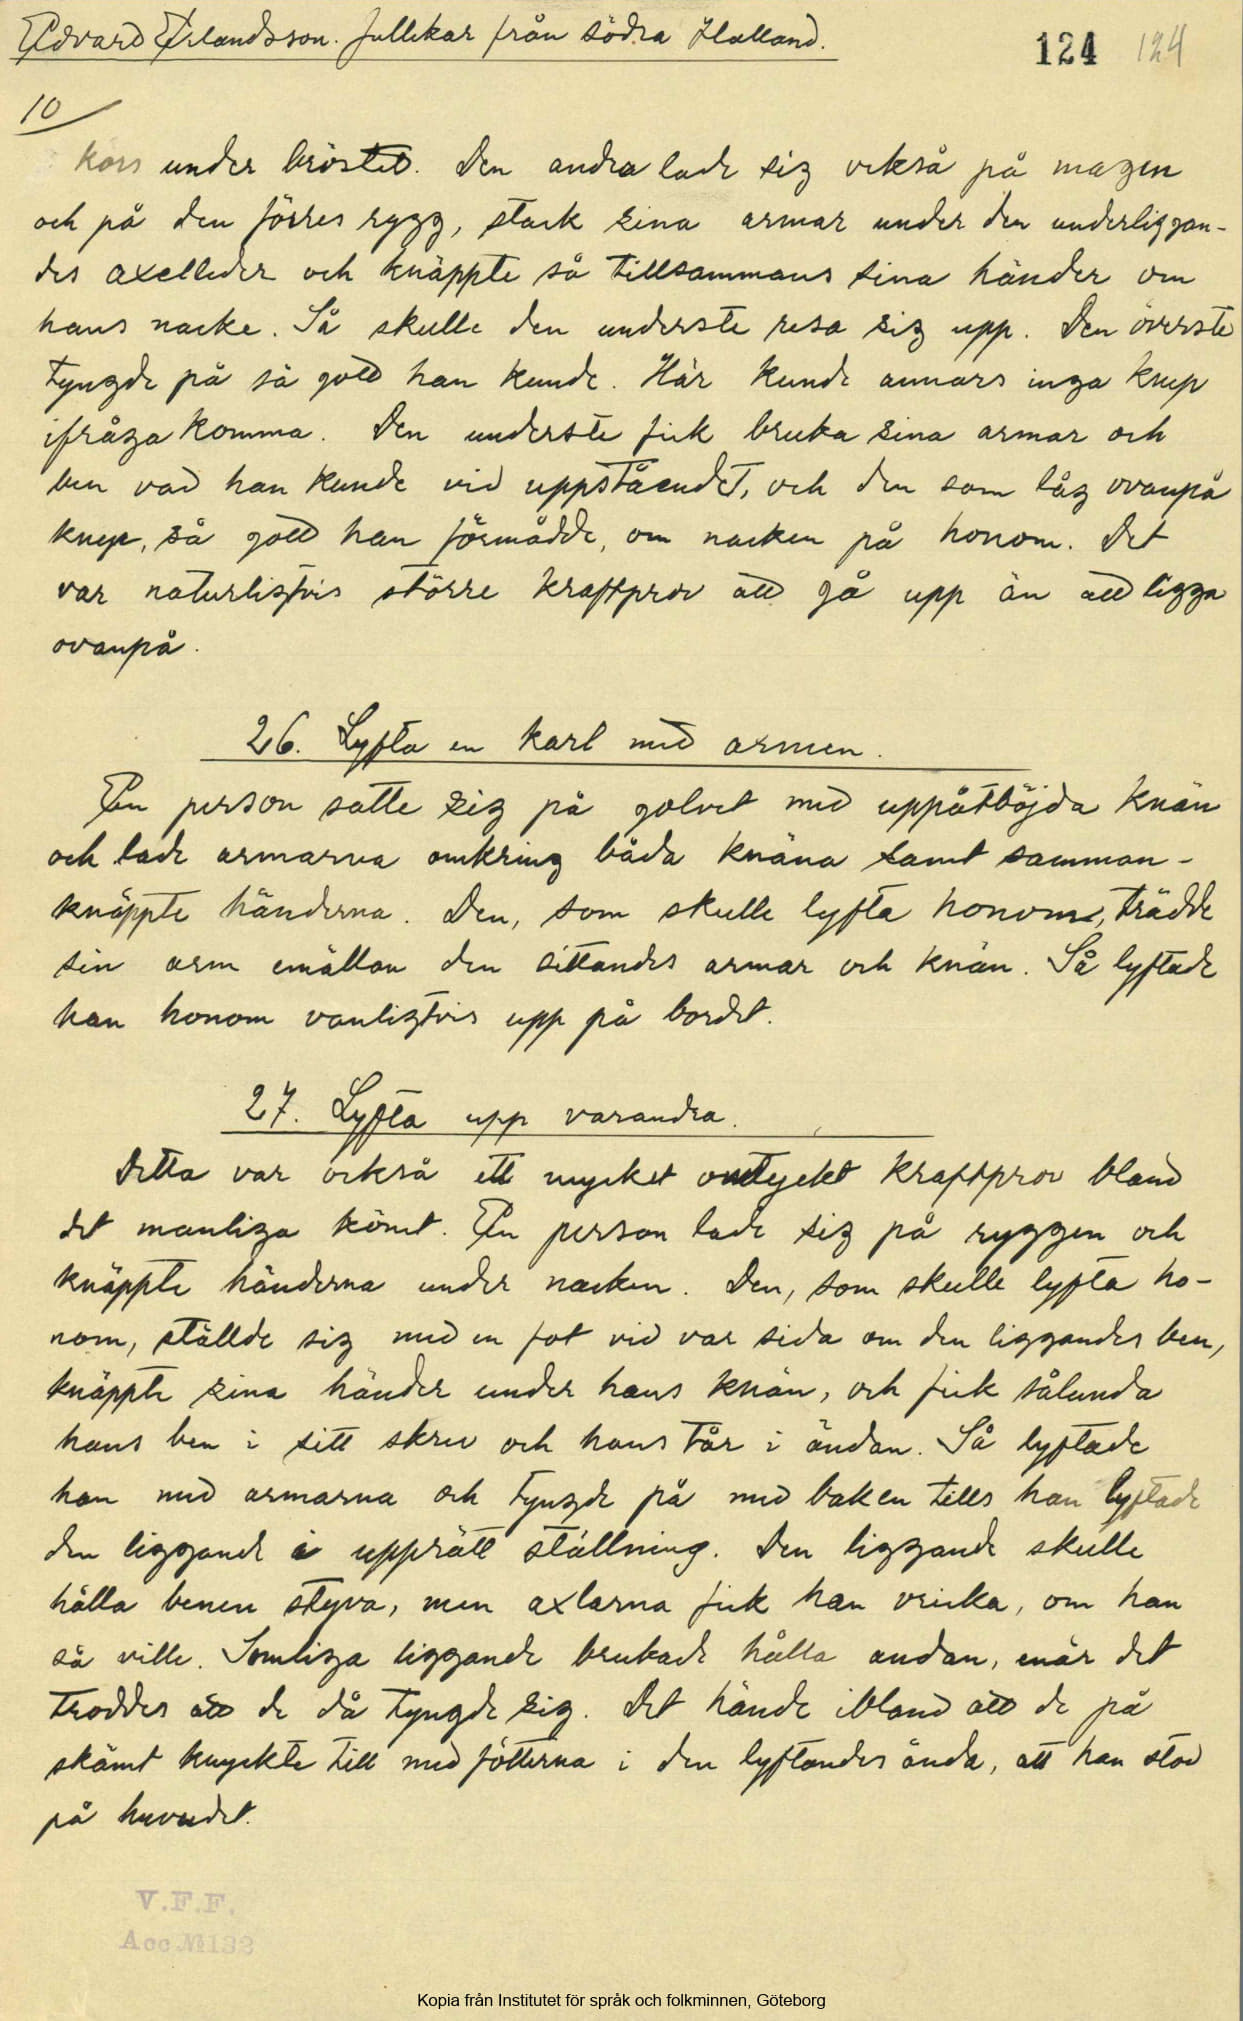 Edvard Erlandsson. Jullekar från södra Halland.
124 124
10
kors under bröstet. Den andra lade sig också på magen
och på den förres rygg, stack sina armar under den underliggan-
des axelleder och knäppte så tillsammans sina händer om
hans nacke. Så skulle den understa resa sig upp. Den överste
tyngde på så gott han kunde. Här kunde annars inga knep
ifråga komma. Den understе fick bruka sina armar och
ben vad han kunde vid uppståendet, och den som låg ovanpå
knep, så gott han förmådde, om nacken på honom. Det
var naturligtvis större kraftprov att gå upp än att ligga
ovanpå.
26. Lyfta en karl med armen.
En person satte sig på golvet med uppåtböjda knän
och lade armarna omkring båda knäna samt samman-
knäppte händerna. Den, som skulle lyfta honom, trädde
sin arm emellan den sittandes armar och knän. Så lyftade
han honom vanligtvis upp på bordet.
27. Lyfta upp varandra.
Detta var också ett mycket omtyckt kraftprov bland
det manliga könet. En person lade sig på ryggen och
knäppte händerna under nacken. Den, som skulle lyfta ho-
nom, ställde sig med en fot vid var sida om den liggandes ben,
knäppte sina händer under hans knän, och fick sålunda
hans ben i sitt skrev och hans tår i ändan. Så lyftade
han med armarna och tyngde på med baken tills han lyftade
den liggande i upprätt ställning. Den liggande skulle
hålla benen styva, men axlarna fick han vricka, om han
så ville. Somliga liggande brukade hålla andan, enär det
troddes att de då tyngde sig. Det hände ibland att de på
skämt knyckte till med fötterna i den lyftandes ända, att han stod
på huvudet.
V.F.F.
Acc № 133
Kopia från Institutet för språk och folkminnen, Göteborg